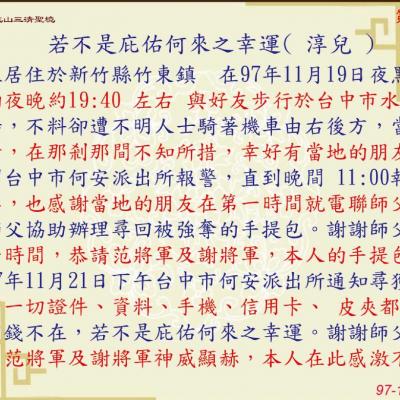 山三清聖境
若不是庇佑何來之幸運( 淳兒 )
居住於新竹縣竹東鎮 在97年11月19日夜
夜晚約19:40 左右 與好友步行於台中市水
，不料卻遭不明人士騎著機車由右後方，
，在那剎那間不知所措，幸好有當地的朋友
台中市何安派出所報警，直到晚間 11:00報
，也感謝當地的朋友在第一時間就電聯師父
父協助辦理尋回被強奪的手提包。謝謝師父
時間，恭請范將軍及謝將軍，本人的手提包
7年11月21日下午台中市何安派出所通知尋獲
一切證件、資料、手機、信用卡、 皮夾都
錢不在，若不是庇佑何來之幸運。謝謝師父
范將軍及謝將軍神威顯赫，本人在此感激不
97-1